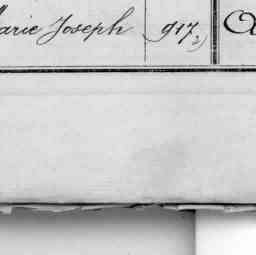 Marie Joseph 917 2)